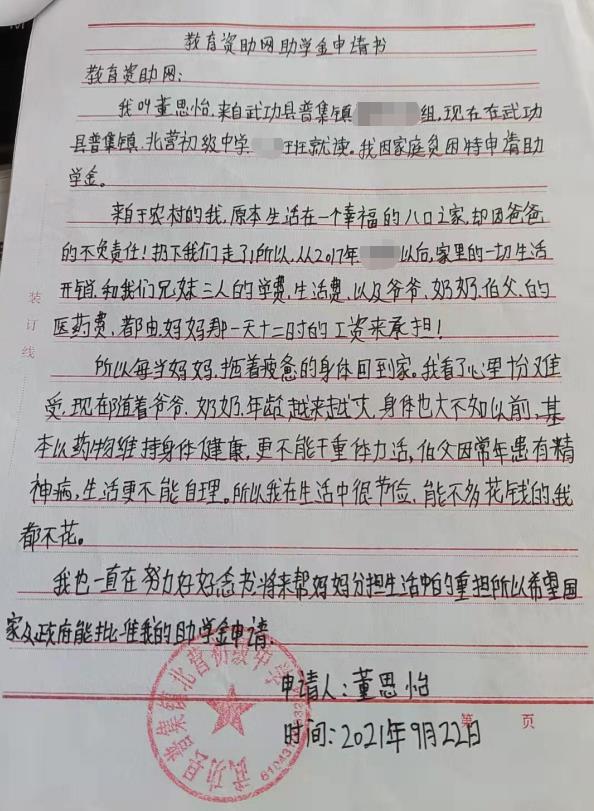 教育资助网助学金申请书
教育资助网:
我叫董思怡,来自武功县普集镇 组,现在在武功
县普集镇.北营初级中学 班就读。我因家庭贫困特申请助
学金。
来自于农村的我,原本生活在一个幸福的八口之家,却因爸爸
的不负责任!扔下我们走了,所以,从2017年 以后,家里的一切生活
开销.和我们兄妹三人的学费.生活费.以及爷爷.奶奶.伯父.的
医药费.都由.妈妈那一天十二时的工资来承担!
所以每当妈妈.拖着疲惫的身体回到家。我看了心里十分难
受.现在随着爷爷.奶奶.年龄越来越大.身体也大不如以前.基
本以药物维持身体健康,更不能干重体力活,伯父因常年患有精
神病,生活更不能自理。所以我在生活中很节俭,能不多花钱的我
都不花。
我也一直在努力好好念书将来帮妈妈分担生活中的重担所以希望国
家及政府能批准我的助学金申请
申请人:董思怡
时间:2021年9月22日
第 页
装订线
武功县普集镇北营初级中学